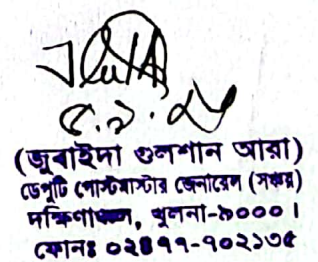 ৫.৯.২৫
(জুবাইদা গুলশান আরা)
ডেপুটি পোস্টমাস্টার জেনারেল (সঞ্চয়)
দক্ষিণাঞ্চল, খুলনা-৯০০০।
ফোনঃ ০২৪৭৭-৭০২১৩৫